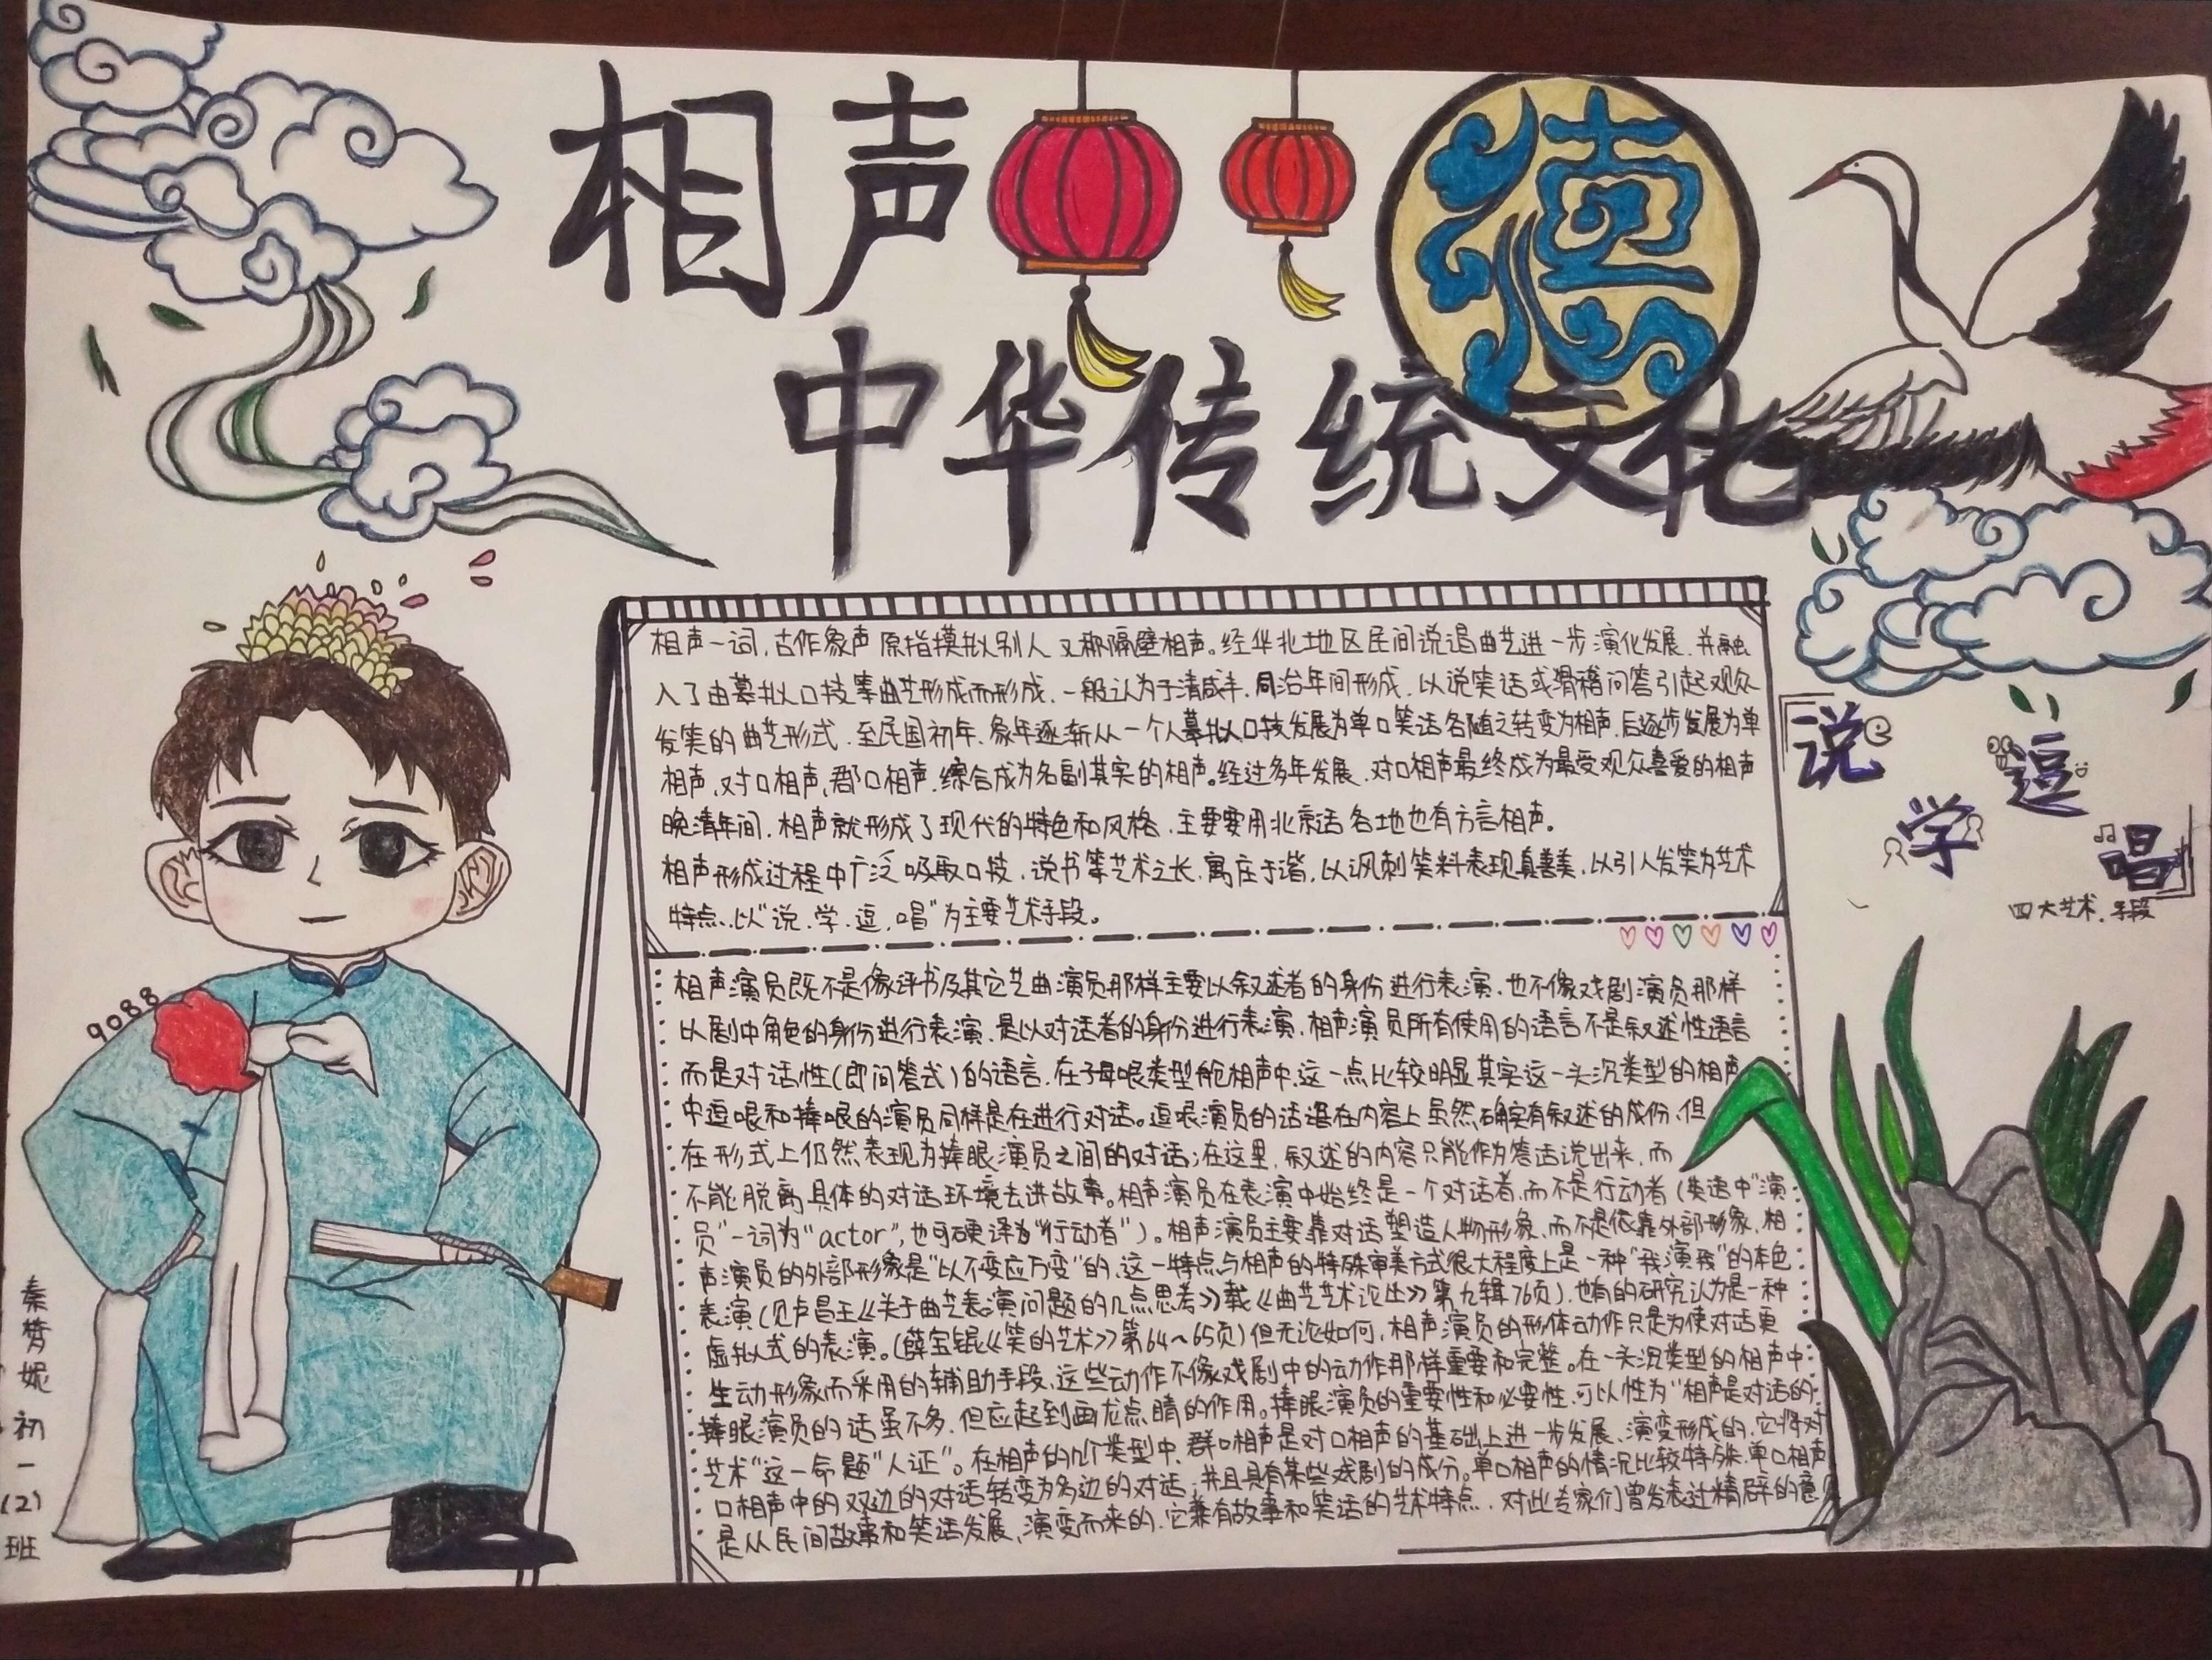 相声
德
中华传统文化
相声一词,古作象声原指模拟别人又称隔壁相声。经华北地区民间说唱曲艺进一步演化发展,并融
入了由摹拟口技等曲艺形成而形成,一般认为于清咸丰,同治年间形成,以说笑话或滑稽问答引起观众
发笑的曲艺形式,至民国初年,象年逐渐从一个人摹拟口技发展为单口笑话名随之转变为相声,后逐步发展为单
相声,对口相声,群口相声,综合成为名副其实的相声。经过多年发展,对口相声最终成为最受观众喜爱的相声
晚清年间,相声就形成了现代的特色和风格,主要要用北京话各地也有方言相声。
相声形成过程中广泛吸取口技,说书等艺术之长,寓庄于谐,以讽刺笑料表现真善美,以引人发笑为艺术
特点,以"说.学.逗.唱"为主要艺术手段。
说
逗
学
唱
四大艺术手段
相声演员既不是像评书及其它艺曲演员那样主要以叙述者的身份进行表演,也不像戏剧演员那样
以剧中角色的身份进行表演,是以对话者的身份进行表演,相声演员所有使用的语言不是叙述性语言
而是对话性(即问答式)的语言,在子母哏类型的相声中,这一点比较明显其实这一头沉类型的相声
中逗哏和捧哏的演员同样是在进行对话。逗哏演员的话语在内容上虽然确实有叙述的成份,但
在形式上仍然表现为捧眼演员之间的对话;在这里,叙述的内容只能作为答话说出来,而
不能脱离具体的对话环境去讲故事。相声演员在表演中始终是一个对话者,而不是行动者(英语中"演
员"一词为"actor",也可硬译为"行动者")。相声演员主要靠对话塑造人物形象,而不是依靠外部形象,相
声演员的外部形象是"以不变应万变"的,这一特点与相声的特殊审美方式很大程度上是一种"我演我"的本色
表演(见卢昌王《关于曲艺表演问题的几点思考》载《曲艺艺术论丛》第九辑76页),也有的研究认为是一种
虚拟式的表演。(薛宝锟《笑的艺术》第64~65页)但无论如何,相声演员的形体动作只是为使对话更
生动形象而采用的辅助手段,这些动作不像戏剧中的动作那样重要和完整。在一头沉类型的相声中
捧眼演员的话虽不多,但应起到画龙点睛的作用。捧眼演员的重要性和必要性,可以性为"相声是对话的
艺术"这一命题"人证"。在相声的几个类型中,群口相声是对口相声的基础上进一步发展、演变形成的,它将对
口相声中的双边的对话转变为多边的对话,并且具有某些戏剧的成分。单口相声的情况比较特殊,单口相声
是从民间故事和笑话发展、演变而来的,它兼有故事和笑话的艺术特点,对此专家们曾发表过精辟的意见
9088
秦梦妮初一(2)班